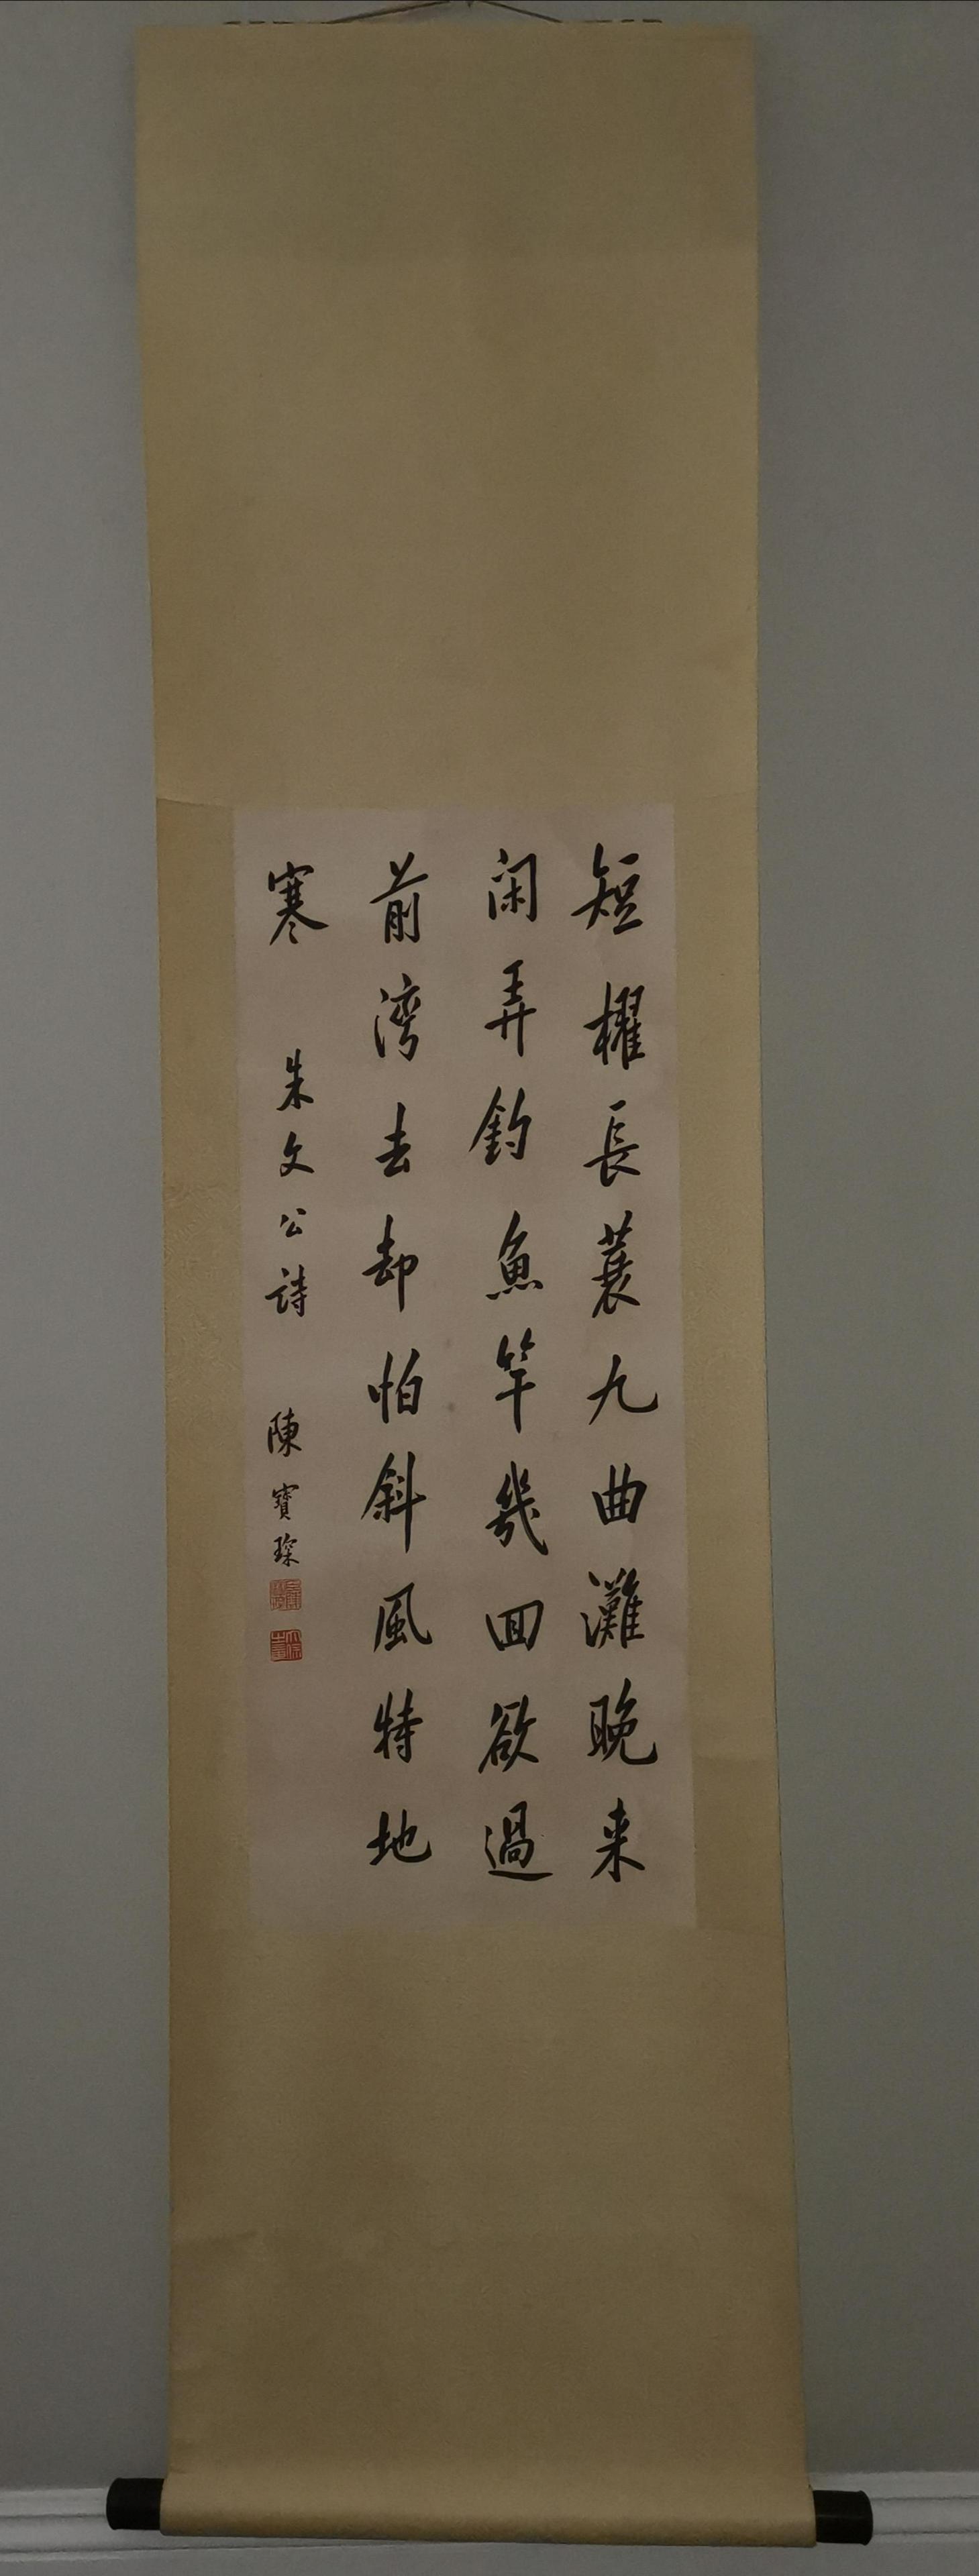 短櫂長蓑九曲灘晚来
閑弄釣魚竿幾回欲過
前湾去却怕斜風特地
寒 朱文公詩 陳寶琛